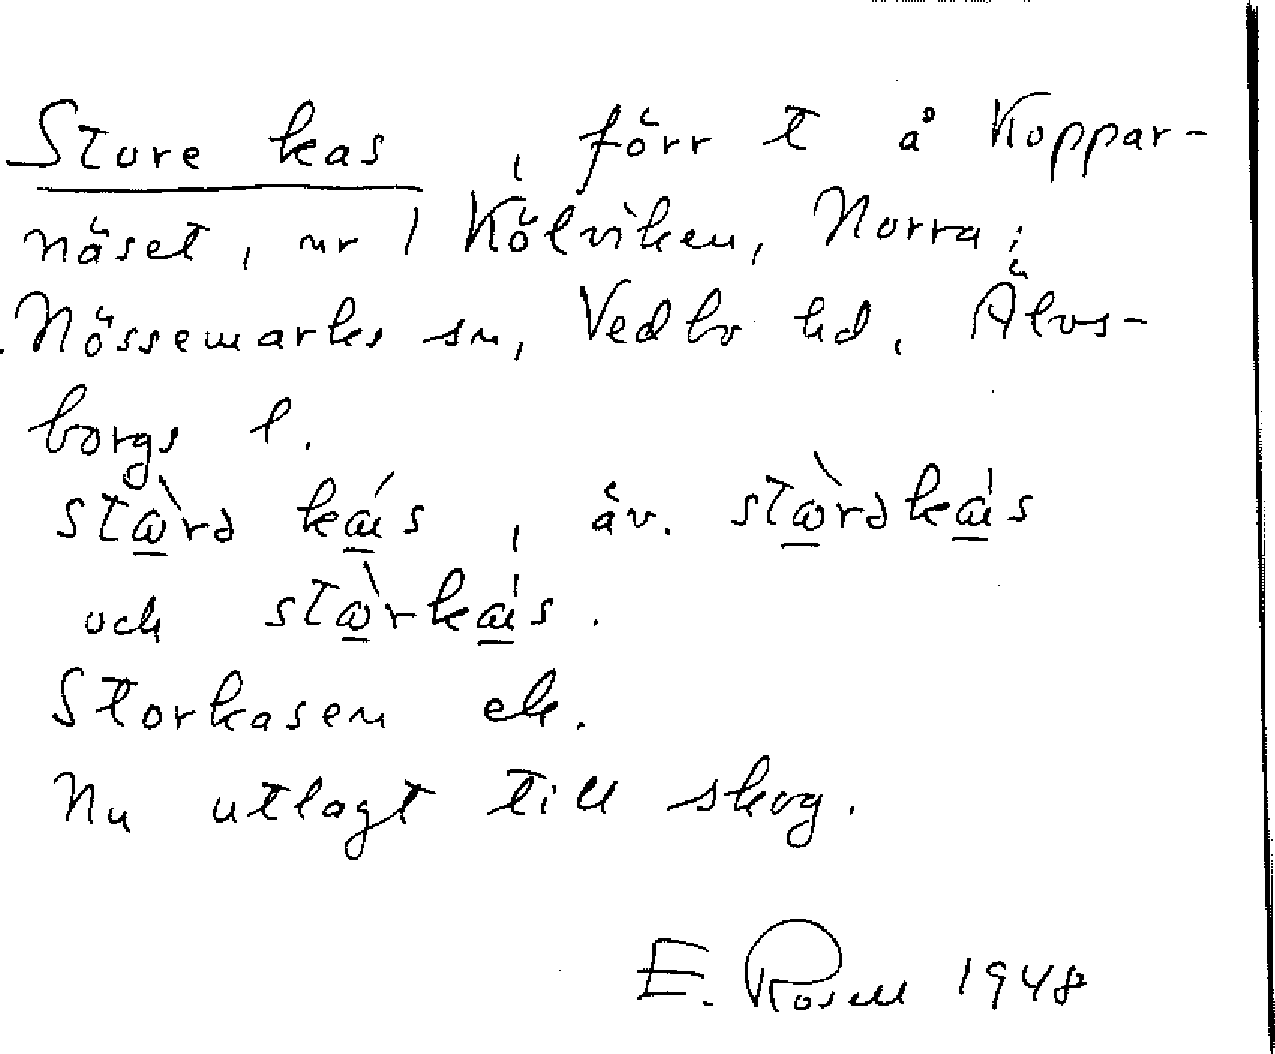 Store kas, förr t å Koppar-
näset, nr 1 Kölviken, Norra;
Nössemarks sn, Vedbo hd, Älvs-
borgs l.
stὼrə kás, äv. stὼrəkás
och stὼrkás.
Storkasen ek.
Nu utlagt till skog.
E. Rosell 1948